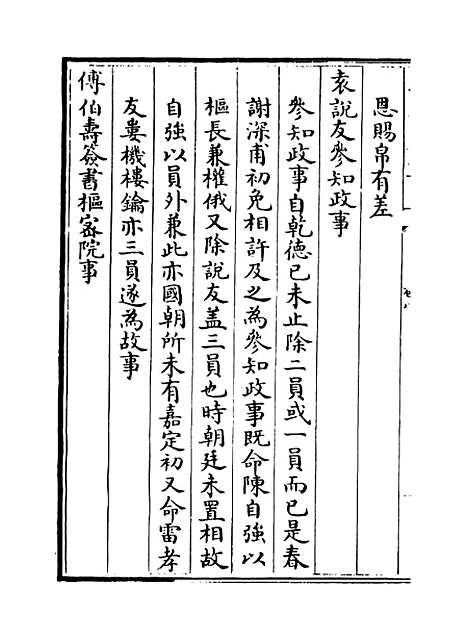 恩賜帛有差
袁說友參知政事
參知政事自乾德已未止除二員或一員而已是春
謝深甫初免相許及之為參知政事既命陳自強以
樞長兼權俄又除說友蓋三員也時朝廷未置相故
自強以員外兼此亦國朝所未有嘉定初又命雷孝
友婁機樓鑰亦三員遂為故事
傅伯壽簽書樞密院事